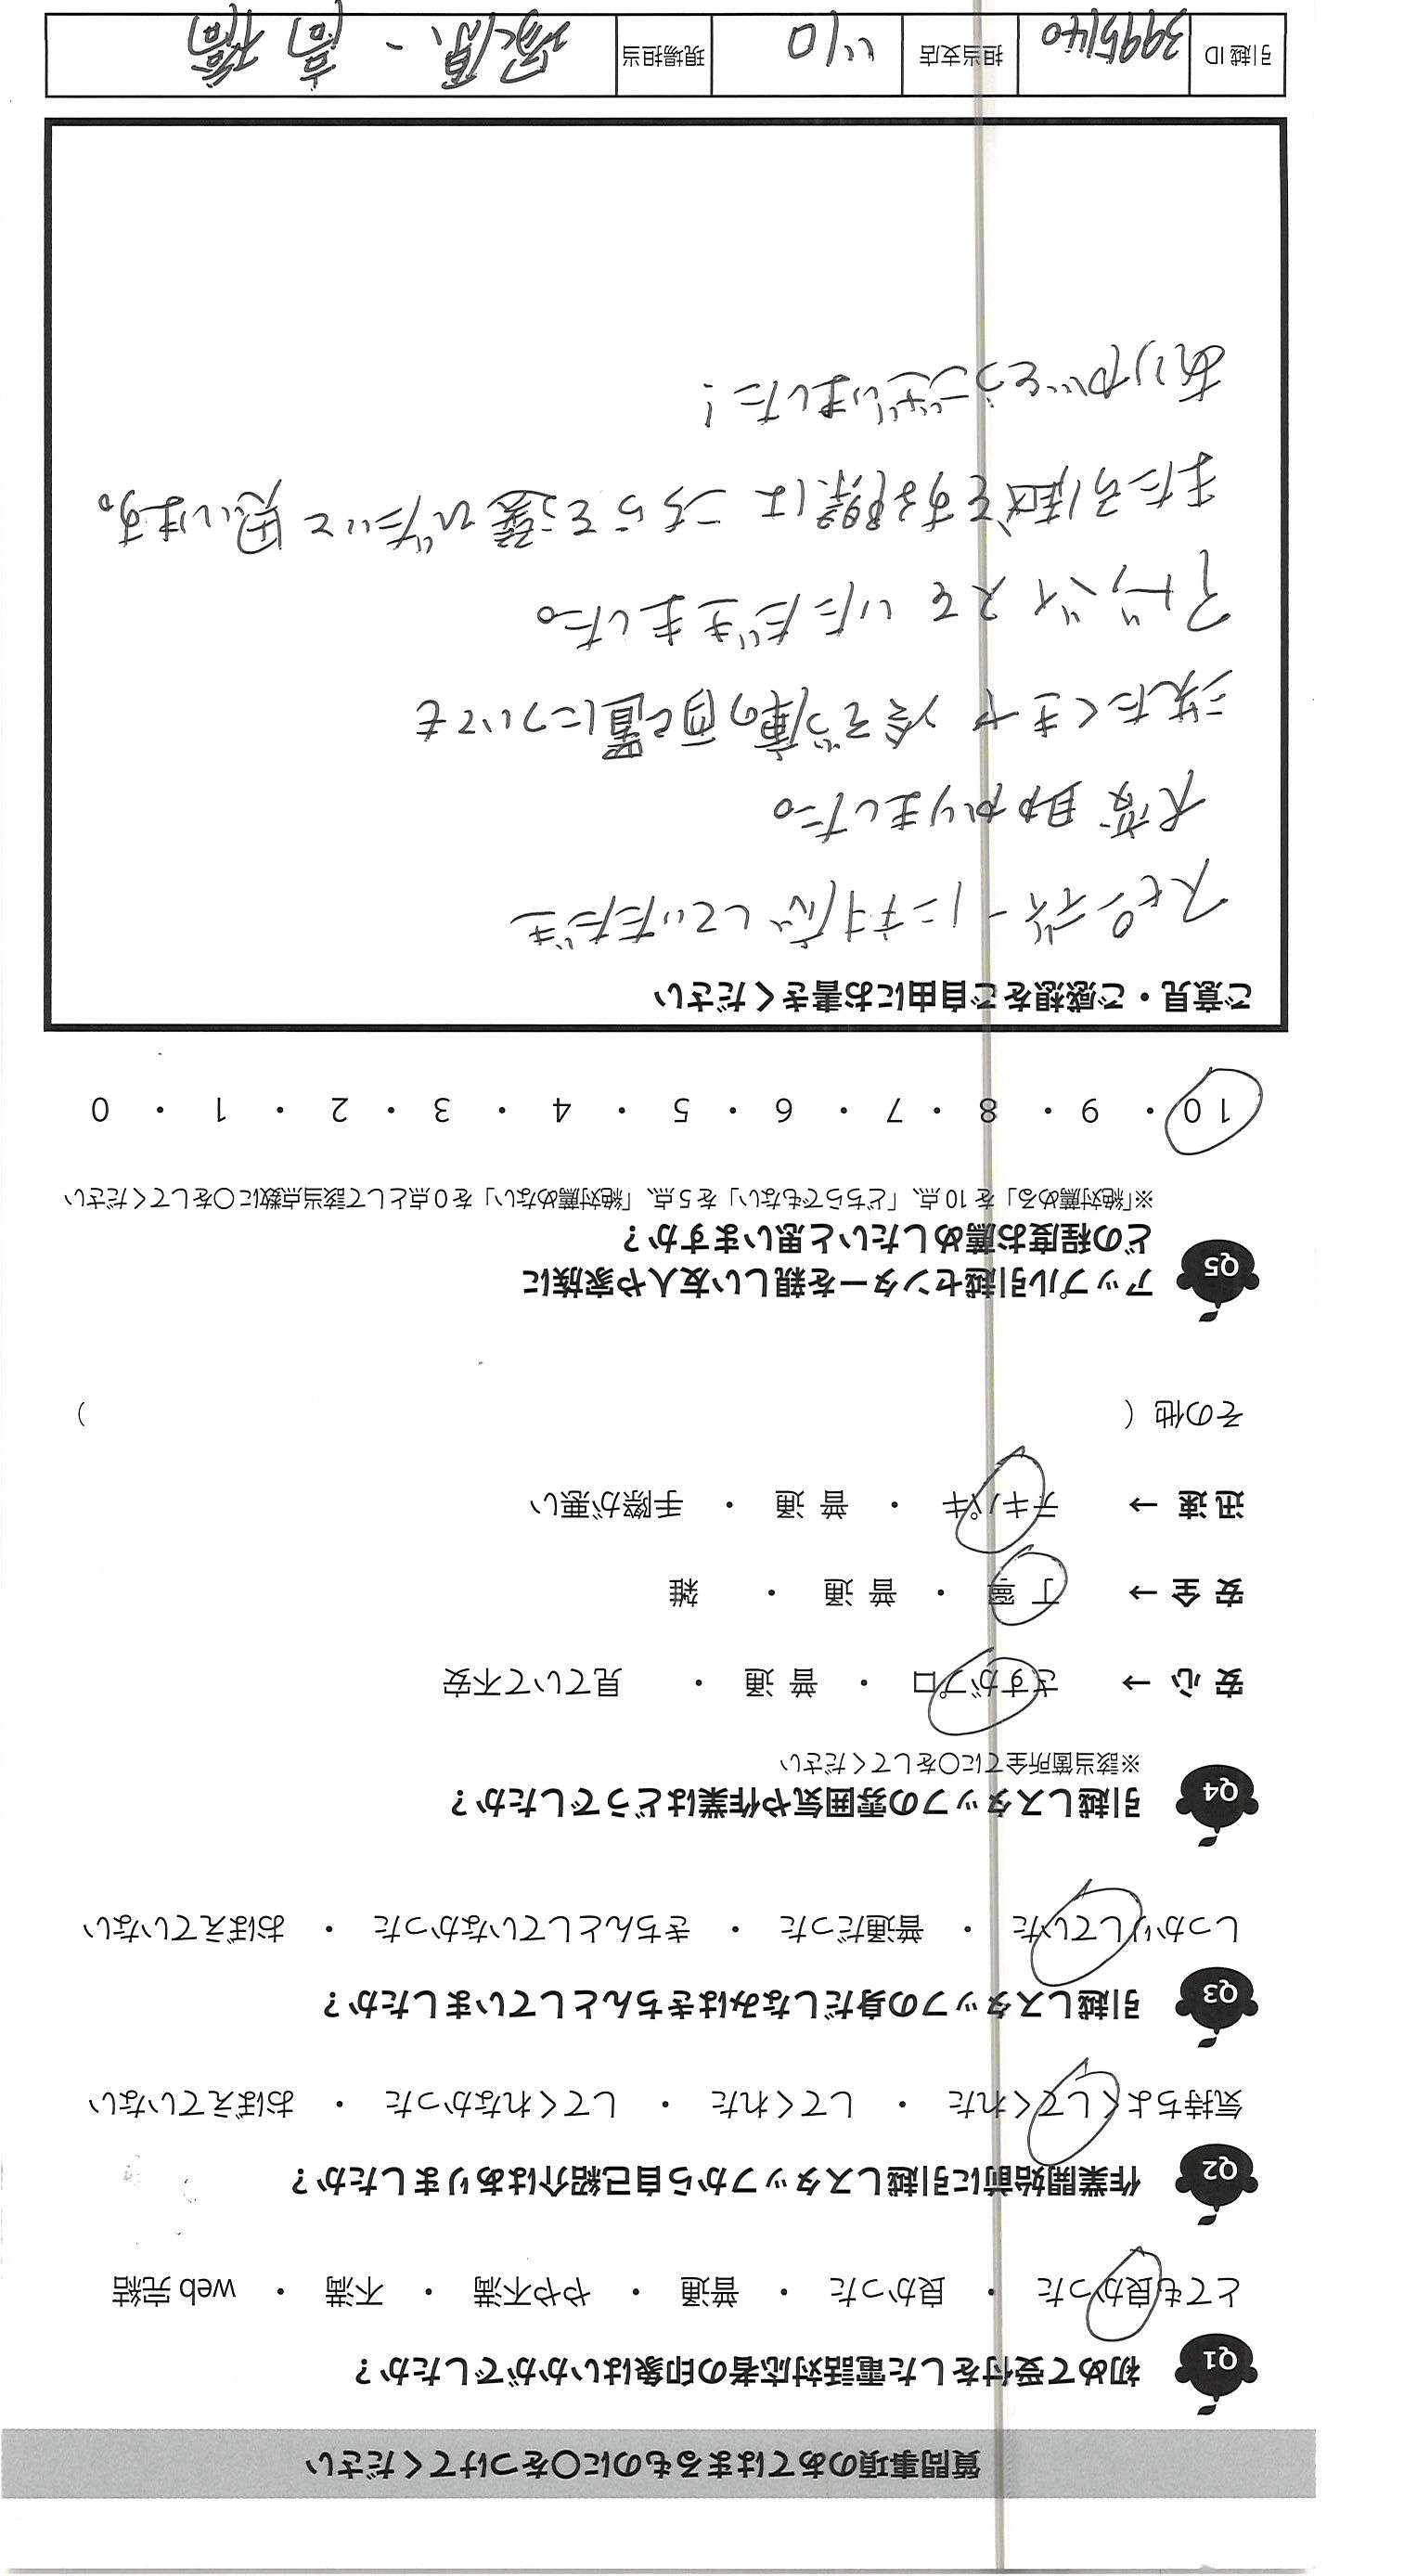 質問事項のあてはまるものに〇をつけてください
Q1 初めて受付をした電話対応者の印象はいかがでしたか?
とても良かった ・ 良かった ・ 普通 ・ やや不満 ・ 不満 ・ web完結
Q2 作業開始前に引越しスタッフから自己紹介はありましたか?
気持ちよくしてくれた ・ してくれた ・ してくれなかった ・ おぼえていない
Q3 引越しスタッフの身だしなみはきちんとしていましたか?
しっかりしていた ・ 普通だった ・ きちんとしていなかった ・ おぼえていない
Q4 引越しスタッフの雰囲気や作業はどうでしたか?
※該当箇所全てに〇をしてください
安心→ さすがプロ ・ 普通 ・ 見ていて不安
安全→ 丁寧 ・ 普通 ・ 雑
迅速→ テキパキ ・ 普通 ・ 手際が悪い
その他( )
Q5 アップル引越センターを親しい友人や家族に
どの程度お薦めしたいと思いますか?
※「絶対薦める」を10点、「どちらでもない」を5点、「絶対薦めない」を0点として該当点数に〇をしてください
10 ・ 9 ・ 8 ・ 7 ・ 6 ・ 5 ・ 4 ・ 3 ・ 2 ・ 1 ・ 0
ご意見・ご感想をご自由にお書きください
スピーディーに対応していただき
大変助かりました。
洗たくきや冷ぞう庫の配置についても
アドバイスをいただきました。
また引越をする際はこちらを選びたいと思います。
ありがとうございました!
引越ID 3995140 担当支店 川口 現場担当 塚原、高橋